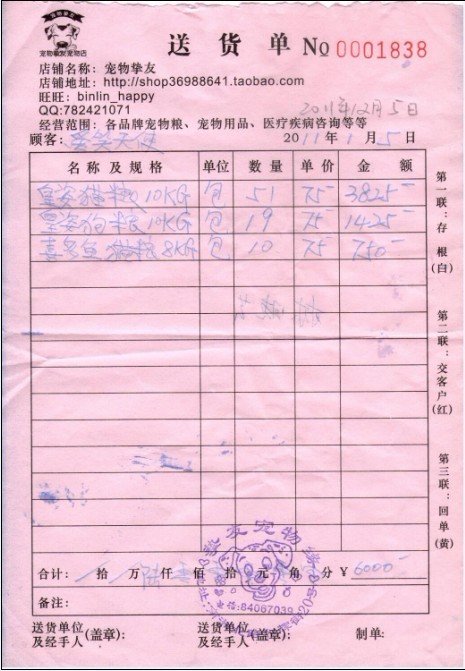 宠物挚友
宠物挚友宠物店
送货单 No 0001838
店铺名称：宠物挚友
店铺地址：http://shop36988641.taobao.com
旺旺：binlin_happy
QQ:782421071
2011年12月5日
经营范围：各品牌宠物粮、宠物用品、医疗疾病咨询等等
顾客: 天使 2011年1月5日
名称及规格 单位 数量 单价 金额
皇姿猫粮10KG 包 51 75 3825-
皇姿狗粮10KG 包 19 75 1425-
喜多鱼猫粮8KG 包 10 75 750-
第一联：存根(白)
第二联：交客户(红)
第三联：回单(黄)
挚友宠物
电信:84067039
合计: 拾 万 陆仟 佰 拾 元 角 分 ¥ 6000-
备注:
送货单位及经手人(盖章):
送货单位及经手人(盖章):
制单: